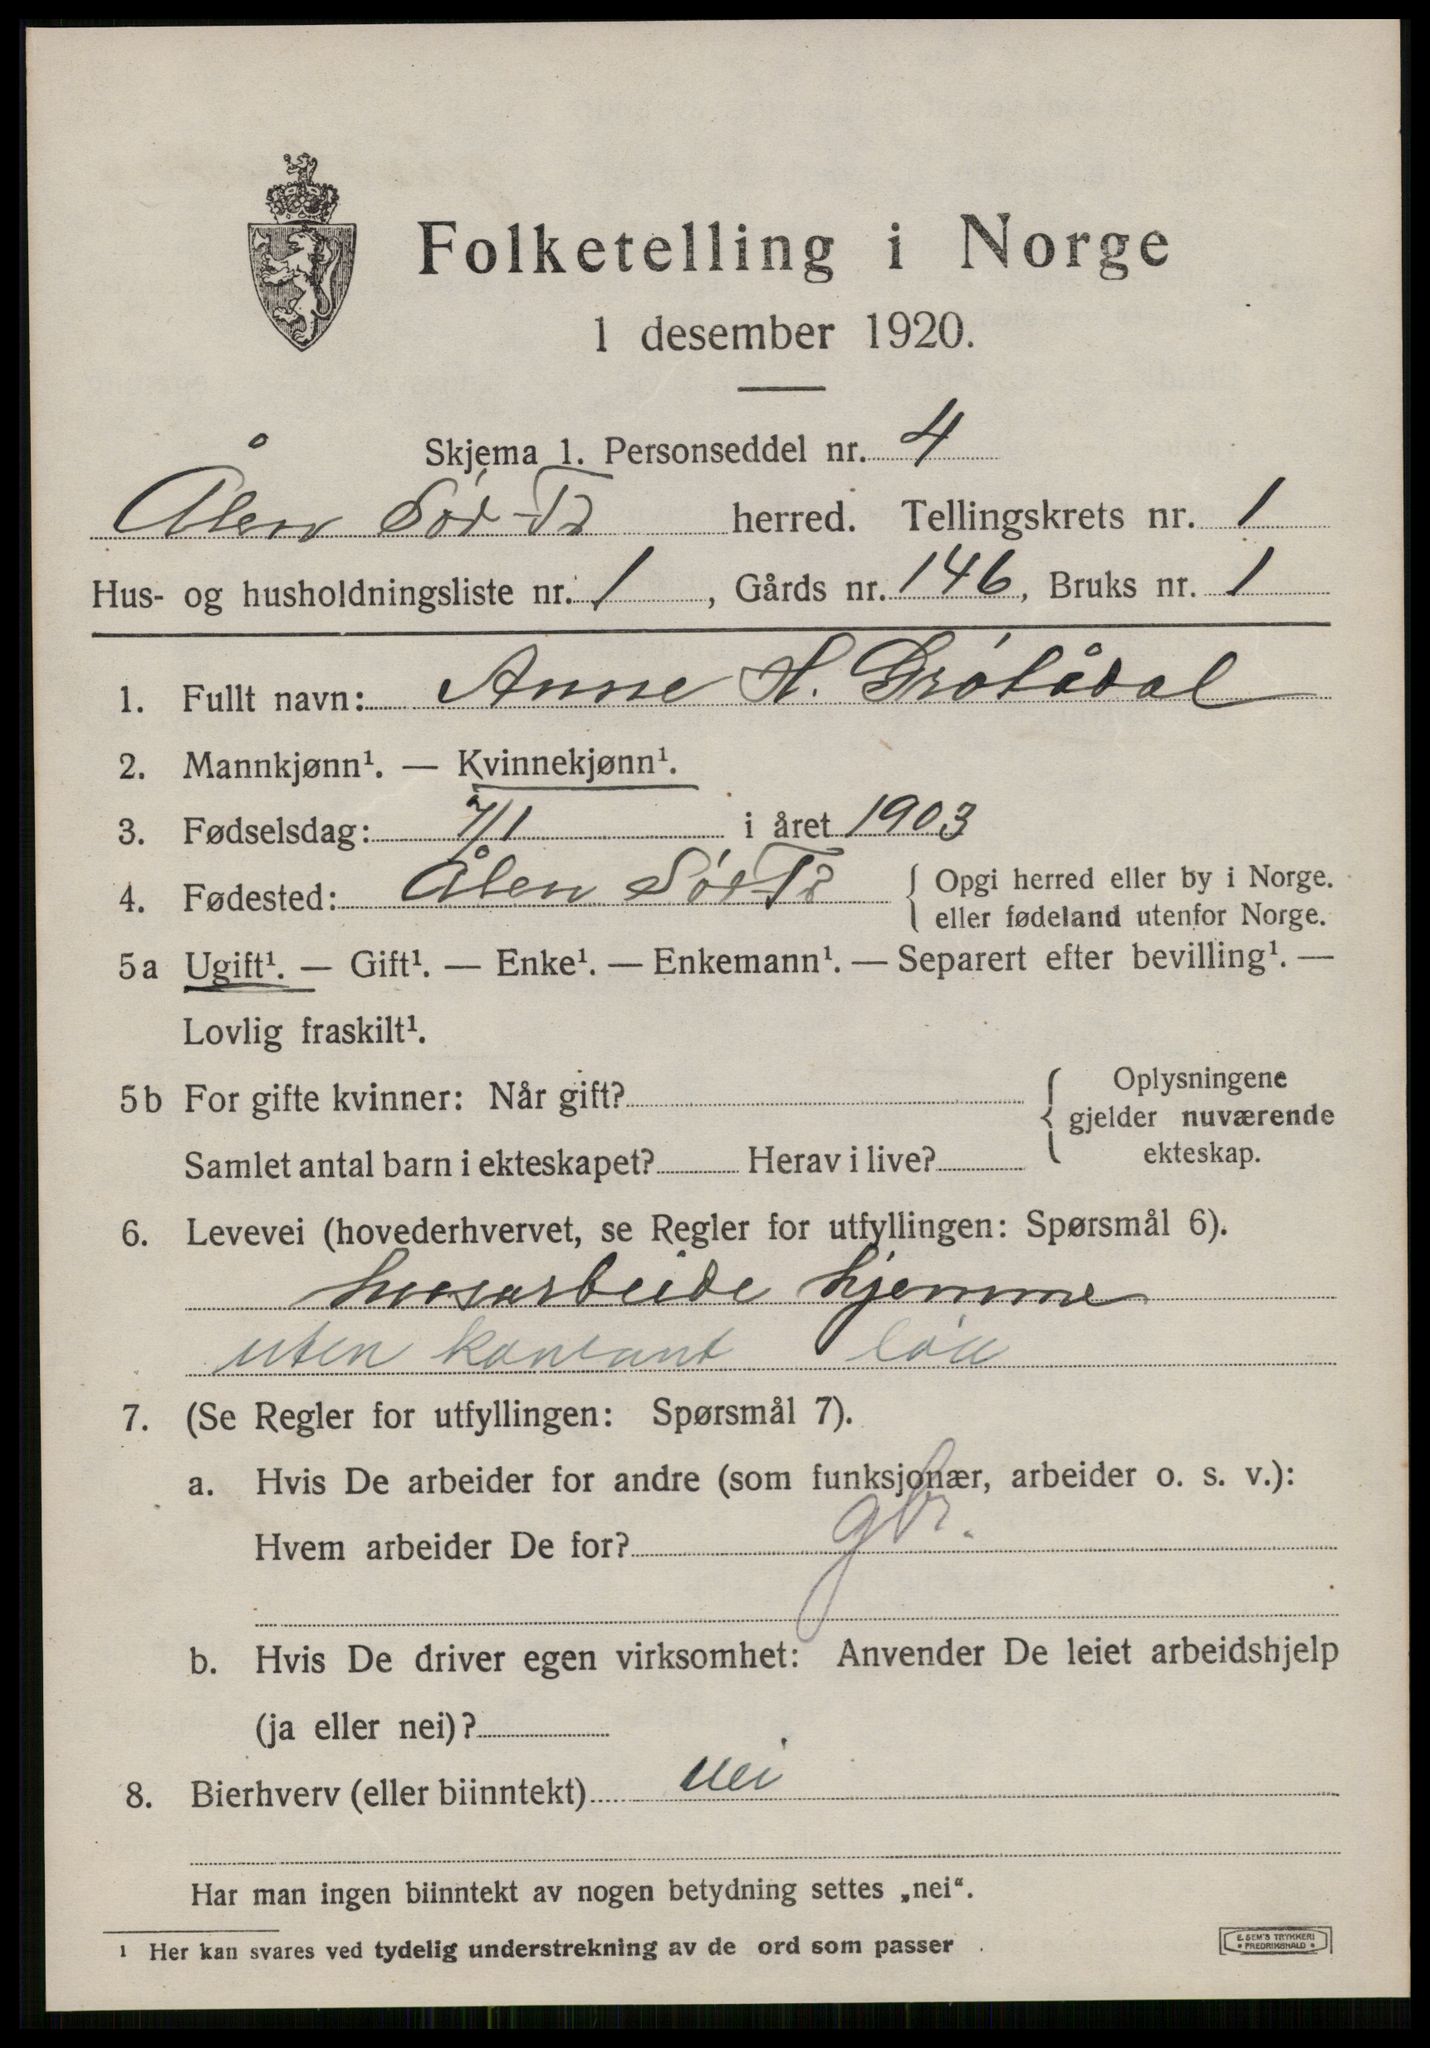 Folketelling i Norge
1 desember 1920.
Skjema 1. Personseddel nr. 4
Ålen Sør Tr herred. Tellingskrets nr. 1
Hus- og husholdningsliste nr. 1, Gårds nr. 146, Bruks nr. 1
1. Fullt navn: Anne H. Drøiådal
2. Mannkjønn¹. — Kvinnekjønn¹.
3. Fødselsdag: 7/1 i året 1903
4. Fødested: Ålen Sør Tr { Opgi herred eller by i Norge.
eller fødeland utenfor Norge.
5a Ugift¹. — Gift¹. — Enke¹. — Enkemann¹. — Separert efter bevilling¹. —
Lovlig fraskilt¹.
5b For gifte kvinner: Når gift? { Oplysningene
gjelder nuværende
ekteskap.
Samlet antal barn i ekteskapet? Herav i live?
6. Levevei (hovederhvervet, se Regler for utfyllingen: Spørsmål 6).
husarbeide hjemme
uten kontant løn
7. (Se Regler for utfyllingen: Spørsmål 7).
a. Hvis De arbeider for andre (som funksjonær, arbeider o. s. v.):
Hvem arbeider De for? gbr.
b. Hvis De driver egen virksomhet: Anvender De leiet arbeidshjelp
(ja eller nei)?
8. Bierhverv (eller biinntekt) nei
Har man ingen biinntekt av nogen betydning settes „nei“.
¹ Her kan svares ved tydelig understrekning av de ord som passer.
E. SEM'S TRYKKERI
FREDRIKSHALD